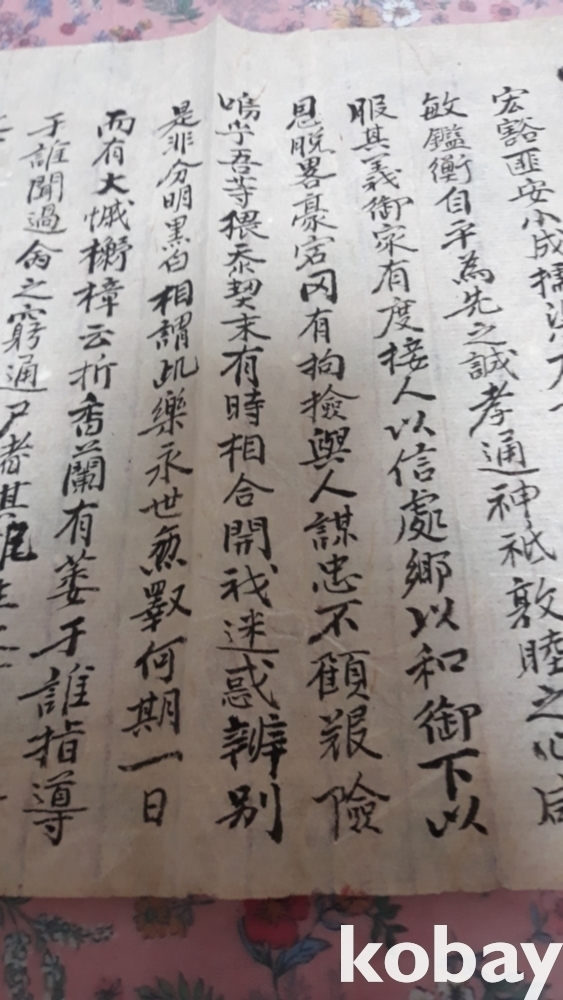 宏豁匪安小成擂
敏鑑衡自平為先之誠孝通神祗敦睦之心
服其義御家有度接人以信處鄉以和御下以
恩脫畧豪宕罔有拘撿與人謀忠不顧艱險
嗚乎吾等猥忝契末有時相合開我迷惑辨別
是非分明黑白相謂此樂永世無斁何期一日
而有大慽櫲樟云折香蘭有萎于誰指導
于誰聞過命之窮通尸者其
kobay